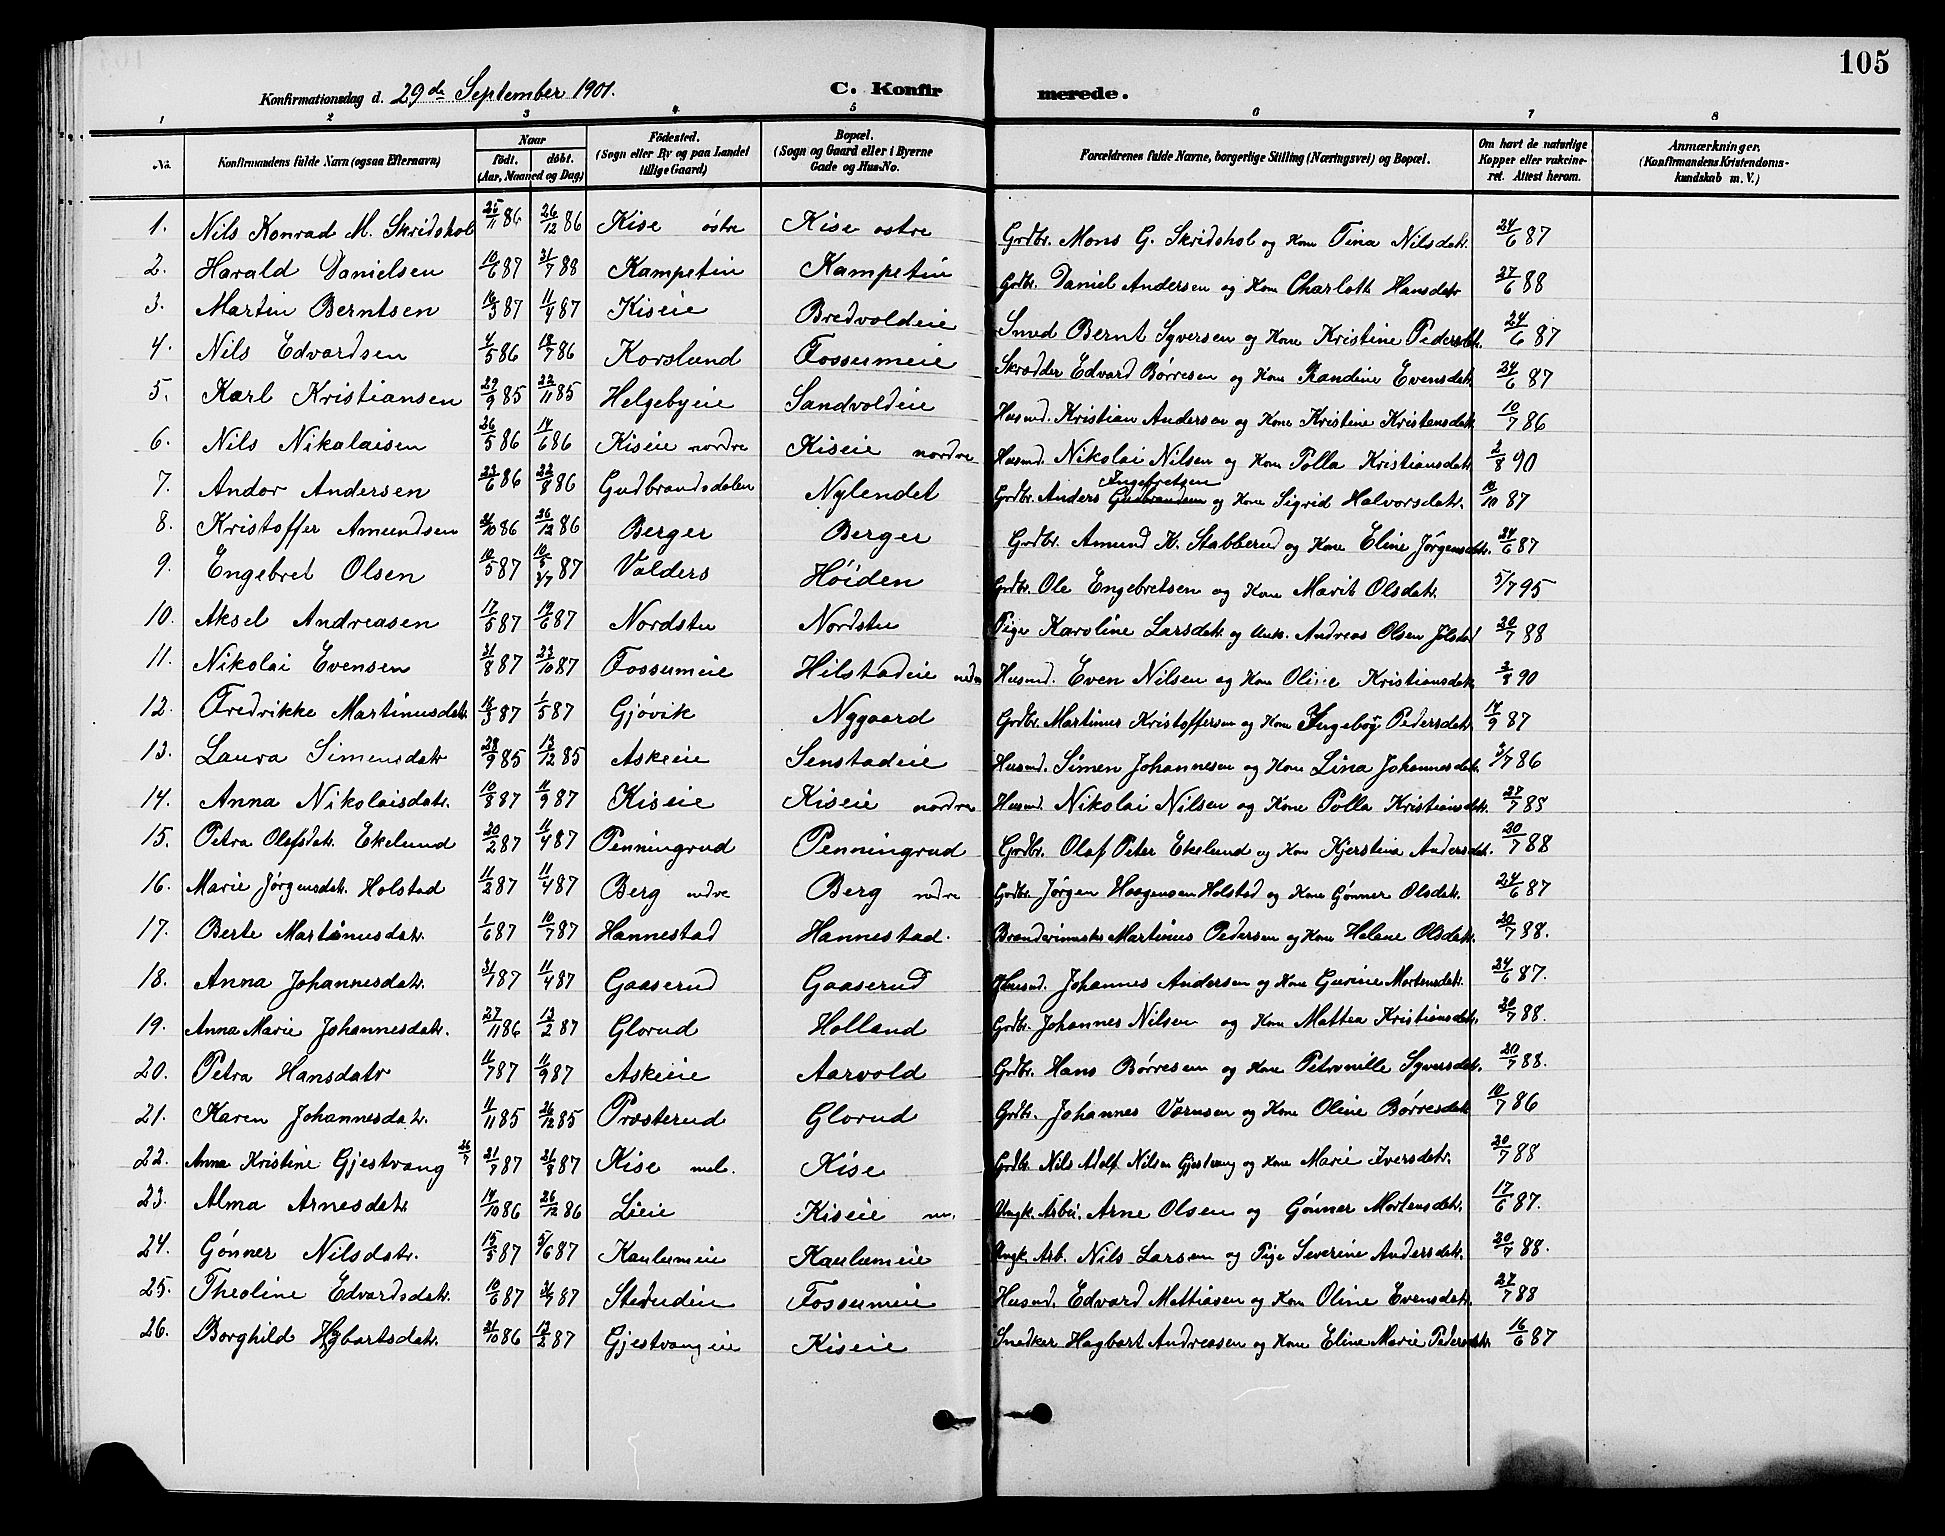 105
Konfirmationsdag d. 29de September 1901. C. Konfirmerede.
1 2 3 4 5 6 7 8
No. Konfirmandens fulde Navn (ogsaa Efternavn) Naar födt. döbt. (Aar, Maaned og Dag) Födested. (Sogn eller By og paa Landet tillige Gaard) Bopæl. (Sogn og Gaard eller i Byerne Gade og Hus-No. Forældrenes fulde Navne, borgerlige Stilling (Næringsvei) og Bopæl. Om havt de naturlige Kopper eller vakcineret. Attest herom. Anmærkninger. (Konfirmandens Kristendomskundskab m. V.)
1. Nils Konrad M. Skridshol 25/11 86 26/12 86 Kise östre Kise östre Grdbr. Mons G. Skridshol og Kone Tina Nilsdatr. 24/6 87
2. Harald Danielsen 10/6 87 31/7 88 Kampetin Kampetin Grdbr. Daniel Andersen og Kone Charlotte Hansdatr 27/6 88
3. Martin Berntsen 3 87 11/4 87 Kiseie Bredvoldeie Smed Bernt Syversen og Kone Kristine Pedersdtr. 24/6 87
4. Nils Edvardsen 4/5 86 18/7 86 Korslund Fossumeie Skrædder Edvard Børresen og Kone Randine Evensdatr. 24/6 87
5. Karl Kristiansen 29/9 85 22/11 85 Helgebyeie Sandvoldeie Husmd. Kristian Andersen og Kone Kristine Kristensdatr. 10/7 86
6. Nils Nikolaisen 26/5 86 14/6 86 Kiseie nordre Kiseie nordre Husmd. Nikolai Nilsen og Kone Polla Kristiansdatr. 2/8 90
7. Andor Andersen 23/6 86 22/8 86 Gudbrandsdalen Nylendet Grdbr. Anders Gudbrandsen Ingebretsen og Kone Sigrid Halvorsdatr. 10 87
8. Kristoffer Amundsen 31/10 86 26/12 86 Berger Berger Grdbr. Amund K. Stabberud og Kone Eline Jørgensdtr. 24/6 87
9. Engebret Olsen 10/5 87 10/5 3/7 87 Valders Höiden Grdbr. Ole Engebretsen og Kone Marit Olsdatr. 5/7 95
10. Aksel Andreasen 17/5 87 19/6 87 Nordstu Nordstu Pige Karoline Larsdatr. og Unk. Andreas Olsen Jølstad 20/7 88
11. Nikolai Evensen 31/8 87 23/10 87 Fossumeie Hilstadeie nedre Husmd. Even Nilsen og Kone Oline Kristiansdatr. 2/8 90
12. Fredrikke Martinusdatr. 3 87 1/5 87 Gjövik Nygaard Grdbr. Martinus Kristoffersen og Kone Ingeborg Pedersdatr. 14/9 87
13. Laura Simensdatr 28/9 85 13/12 85 Askeeie Senstadeie Husmd. Simen Johannesen og Kone Lina Johannesdatr. 3/7 86
14. Anna Nikolaisdatr. 10/8 87 11/9 87 Kiseie Kiseie nordre Husmd. Nikolai Nilsen og Kone Polla Kristiansdatr. 27/7 88
15. Petra Olafsdatr. Ekelund 20/2 87 11/4 87 Penningrud Penningrud Grdbr. Olaf Peter Ekelund og Kone Kjerstina Andersdtr. 20/7 88
16. Marie Jørgensdatr. Holstad 11/2 87 11/4 87 Berg nedre Berg nedre Grdbr. Jørgen Haagensen Holstad og Kone Gönner Olsdatr. 24/6 87
17. Berte Martinusdatr. 1/6 87 10/7 87 Hannestad Hannestad. Martinus Pedersen og Kone Helene Olsdatr. 20/7 88.
18. Anna Johannesdatr. 31/ 87 11/4 87 Gaaserud Gaaserud Husmd. Johannes Andersen og Kone Gurine Mortensdatr. 24/6 87.
19. Anna Marie Johannesdatr. 27/11 86 13/2 87 Glorud Holland Grdbr. Johannes Nilsen og Kone Mattea Kristiansdatr. 20/7 88.
20. Petra Hansdatr 11/7 87 11/9 87 Askeeie Aarvold Grdbr. Hans Børresen og Kone Petronille Syversdatr. 20/7 88.
21. Karen Johannesdatr. 11/11 85 26/12 85 Prosterud Glorud Grdbr. Johannes Larsen og Kone Oline Børresdatr 10/7 86
22. Anna Kristine Gjestvang 26/7 31/7 87 21/8 87 Kise mel. Kise Grdbr. Nils Adolf Nilsen Gjestvang og Kone Marie Iversdatr. 20/7 88
23. Alma Arnesdatr. 14/10 86 26/12 86 Lieie Kiseie Ungk. Arbei. Arne Olsen og Gönner Mortensdatr. 17/6 87.
24. Gönner Nilsdatr. 15/5 87 5/6 87 Kaulumeie Kaulumeie Ungk. Arb. Nils Larsen og Pige Severine Andersdatr. 20/7 88.
25. Theoline Edvardsdatr. 10/6 87 31/7 87 Fossumeie Husmd. Edvard Mattiasen og Kone Oline Evensdatr. 27/7 88
26. Borghild Hgbartsdatr. 31/10 86 13/2 87 Gjestvangeie Kiseie Snedker Hagbart Andreasen og Kone Eline Marie Pedersdtr. 16/6 87